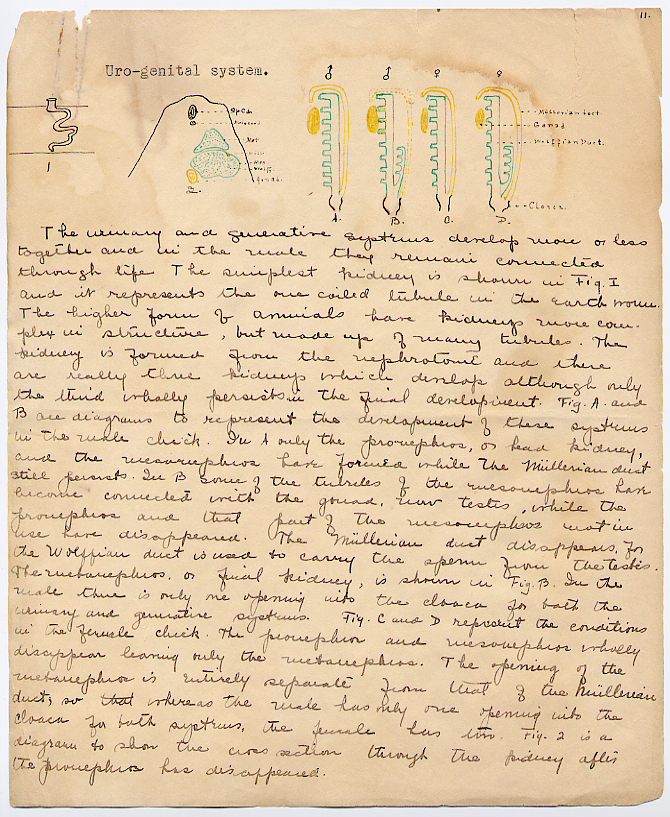 11.
Uro-genital system.
♂ ♂ ♀ ♀
Müllerian duct
Gonad
Wolffian Duct.
Cloaca
1
A. B. C. D.
The urinary and generative systems develop more or less
together and in the male they remain connected
through life The simplest kidney is shown in Fig. I
and it represents the one coiled tubule in the Earth worm.
The higher form of animals have kidneys more com-
plex in structure, but made up of many tubules. The
kidney is formed from the nephrotome and there
are really three kidneys which develop although only
the third wholly persists in the final development. Fig. A. and
B are diagrams to represent the development of these systems
in the male chick. In A only the pronephros, or head kidney,
and the mesonephros have formed while the Müllerian duct
still persists. In B some of the tubules of the mesonephros have
become connected with the gonad, now testis, while the
pronephros and that part of the mesonephros not in
use have disappeared. The Müllerian duct disappears, for
the Wolffian duct is used to carry the sperm from the testis.
The metanephros, or final kidney, is shown in Fig. B. In the
male there is only one opening into the cloaca for both the
urinary and generative systems. Fig. C and D represent the conditions
in the female chick. The pronephros and mesonephros wholly
disappear leaving only the metanephros. The opening of the
metanephros is entirely separate from that of the Müllerian
duct, so that whereas the male has only one opening into the
cloaca for both systems, the female has two. Fig. 2 is a
diagram to show the cross section through the kidney after
the pronephros has disappeared.